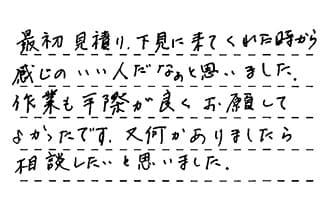 最初見積り、下見に来てくれた時から
感じのいい人だなぁと思いました。
作業も手際が良くお願して
よかったです。又何かありましたら
相談したいと思いました。